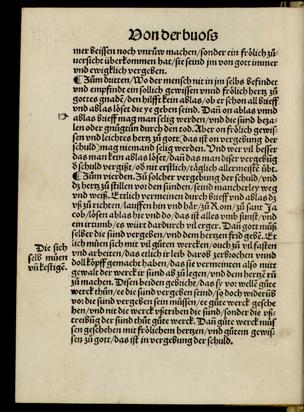 Von der buoß
mer beissen noch vnrůw machen/sonder ein frölich zů-
uersicht überkommen hat/sie seind jm von gott immer
vnd ewigklich vergeben.
¶ Zům dritten/Wo der mensch nit in jm selbs befindet
vnd empfindt ein sollich gewissen vnnd frölich hertz zů
gottes gnadē/den hilfft kein ablas/ob er schon all brieff
vnd ablas löset die ye geben seind. Dañ on ablas vnnd
ablas brieff mag man selig werden/vnd die sünd beza-
len oder gnůgtůn durch den tod. Aber on frölich gewis-
sen vnd leichtes hertz zů gott/das ist on vergebung der
schuld/mag niemand selig werden. Und wer vil besser
das man kein ablas löset/dañ das man diser vergebung
d̓ schuld vergißt/od̓ nit erstlich/täglich allermeist ůbt.
¶ Zům vierden. Zů solcher vergebung der schuld/vnd
dz hertz zů stillen vor den sünden/seind mancherley weg
vnd weiß. Ettlich vermeinen durch brieff vnd ablas dz
vß zů richten/lauffen hin vnd här/zů Rom/zů sant Ja
cob/lösen ablas hie vnd do/das ist alles vmb sunst/vnd
ein irtrumb/es würt dardurch vil erger. Dañ gott můß
selber die sünd vergeben/vnd dem hertzen frid gebē. Et
lich müen sich mit vil gůten wercken/ouch zů vil fasten
vnd arbeiten/das etlich ir leib darob zerbochen vnnd
doll köpff gemacht haben/das sie vermeinten also mit
gewalt der werck ir sünd ab zů legen/vnd dem hertzē rů
zů machen. Disen beiden gebricht/das sy vor wellē gůte
werck thůn/ee die sünd vergeben seind/so doch widerůb
vor die sünd vergeben sein müssen/ee gůte werck gesche
hen/vnd nit die werck vßtriben die sünd/sonder die vß-
treibūg der sünd thůt gůte werck. Dañ gůte werck můs
sen geschehen mit frölichem hertzen/vnd gůtem gewis-
sen zů gott/das ist in vergebung der schuld.
Die sich
selb müen
vñ kestigē.